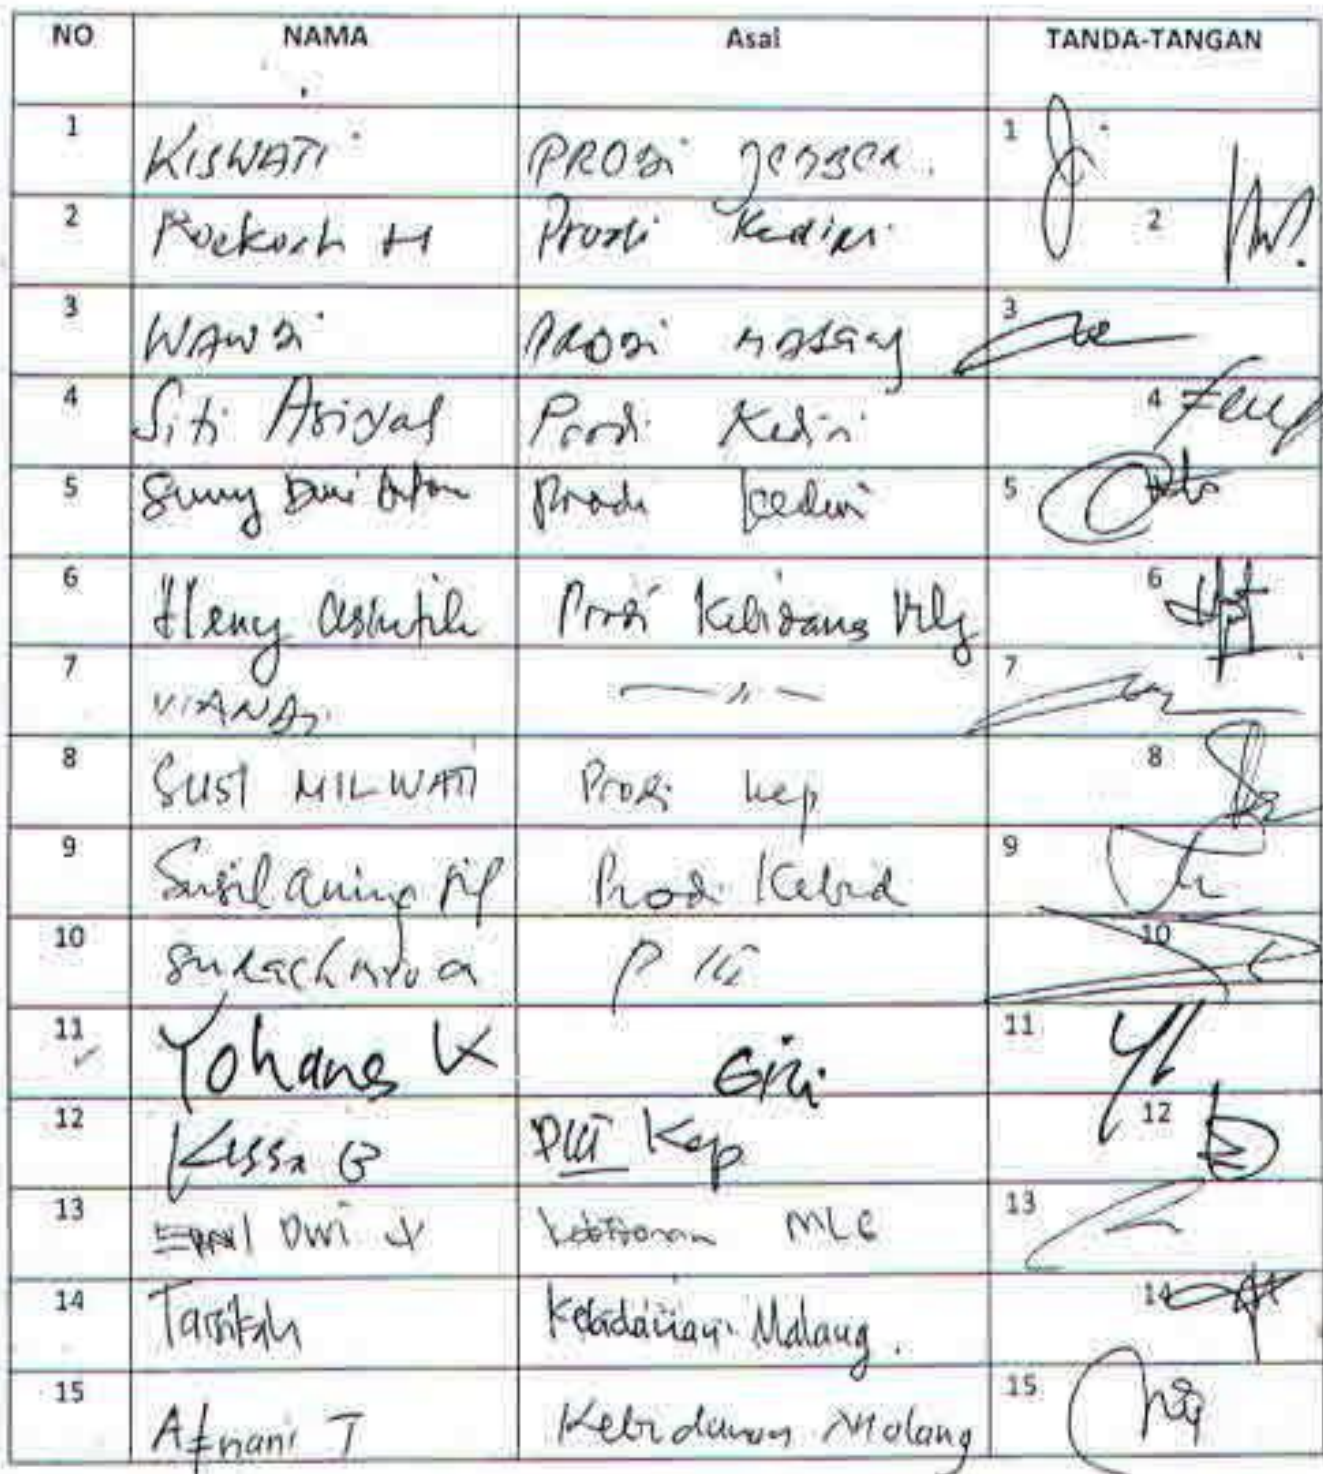 NO NAMA Asal TANDA-TANGAN
1 KISWATI PRODi Jember. 1
2 Roekoah H Prodi Kediri 2
3 WAWDi PRODi MALANG 3
4 Siti Asiyah Prodi Kediri 4
5 Dwi Prodi Kediri 5
6 Heny Astutik Prodi Kebidang Mlg 6
7 —〃— 7
8 SUSI MILWATI Prodi Kep 8
9 Susil Prodi Kebid 9
10 P 10
11 Yohanes K Gizi 11
12 Kissa B DIII Kep 12
13 DWI MLG 13
14 Tarsikah Kebidanan Malang. 14
15 Afnani T Kebidanan Malang 15